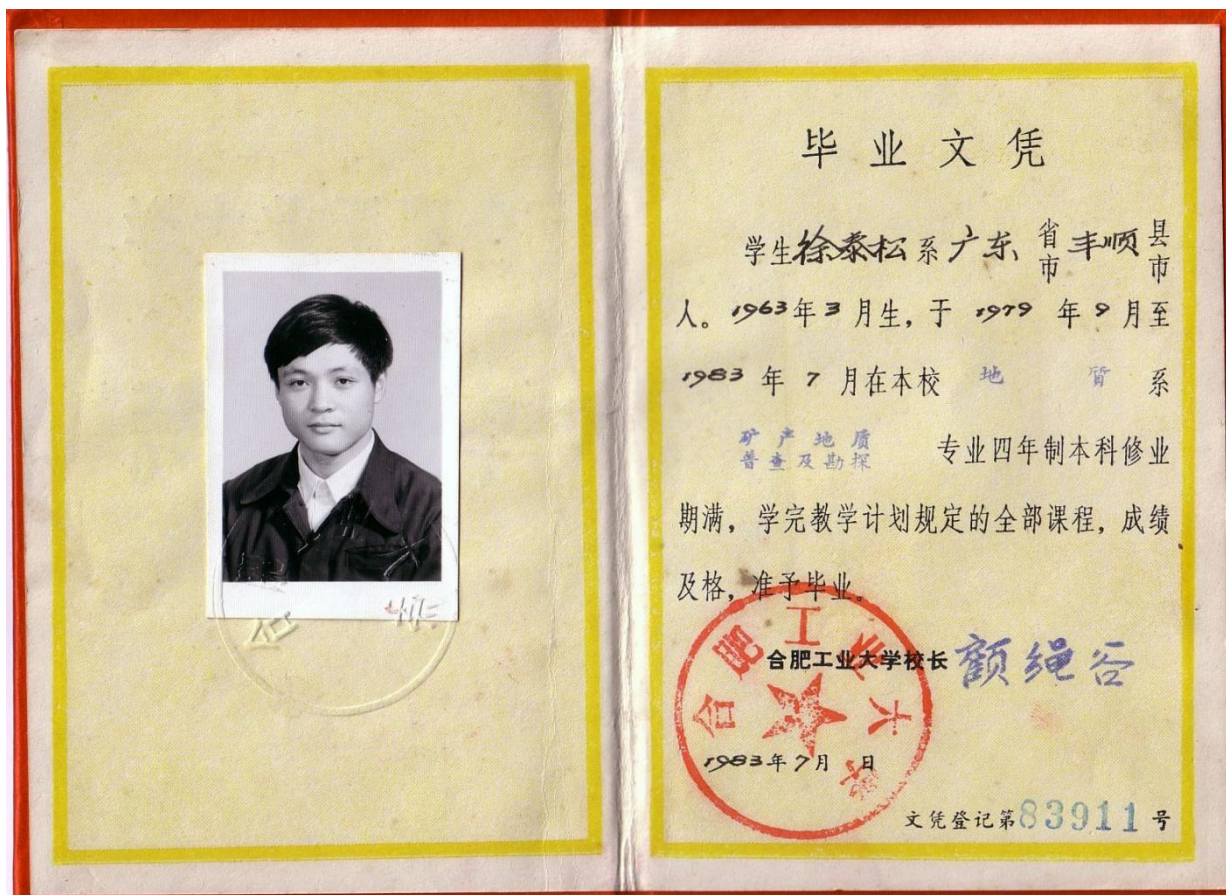 毕业文凭
学生徐泰松系广东省市丰顺县市
人。1963年3月生，于1979年9月至
1983年7月在本校地质系
矿产地质
普查及勘探专业四年制本科修业
期满，学完教学计划规定的全部课程，成绩
及格，准予毕业。
合肥工业大学校长
合肥工业大学
1983年7月 日
文凭登记第83911号